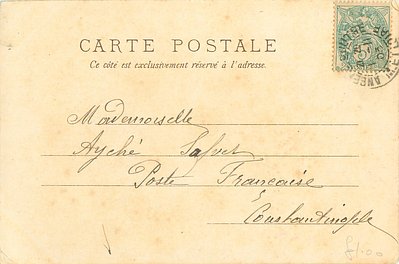 CARTE POSTALE
Ce côté est exclusivement réservé à l'adresse.
Mademoiselle
Ayché Safvet
Poste Française
à
Constantinople